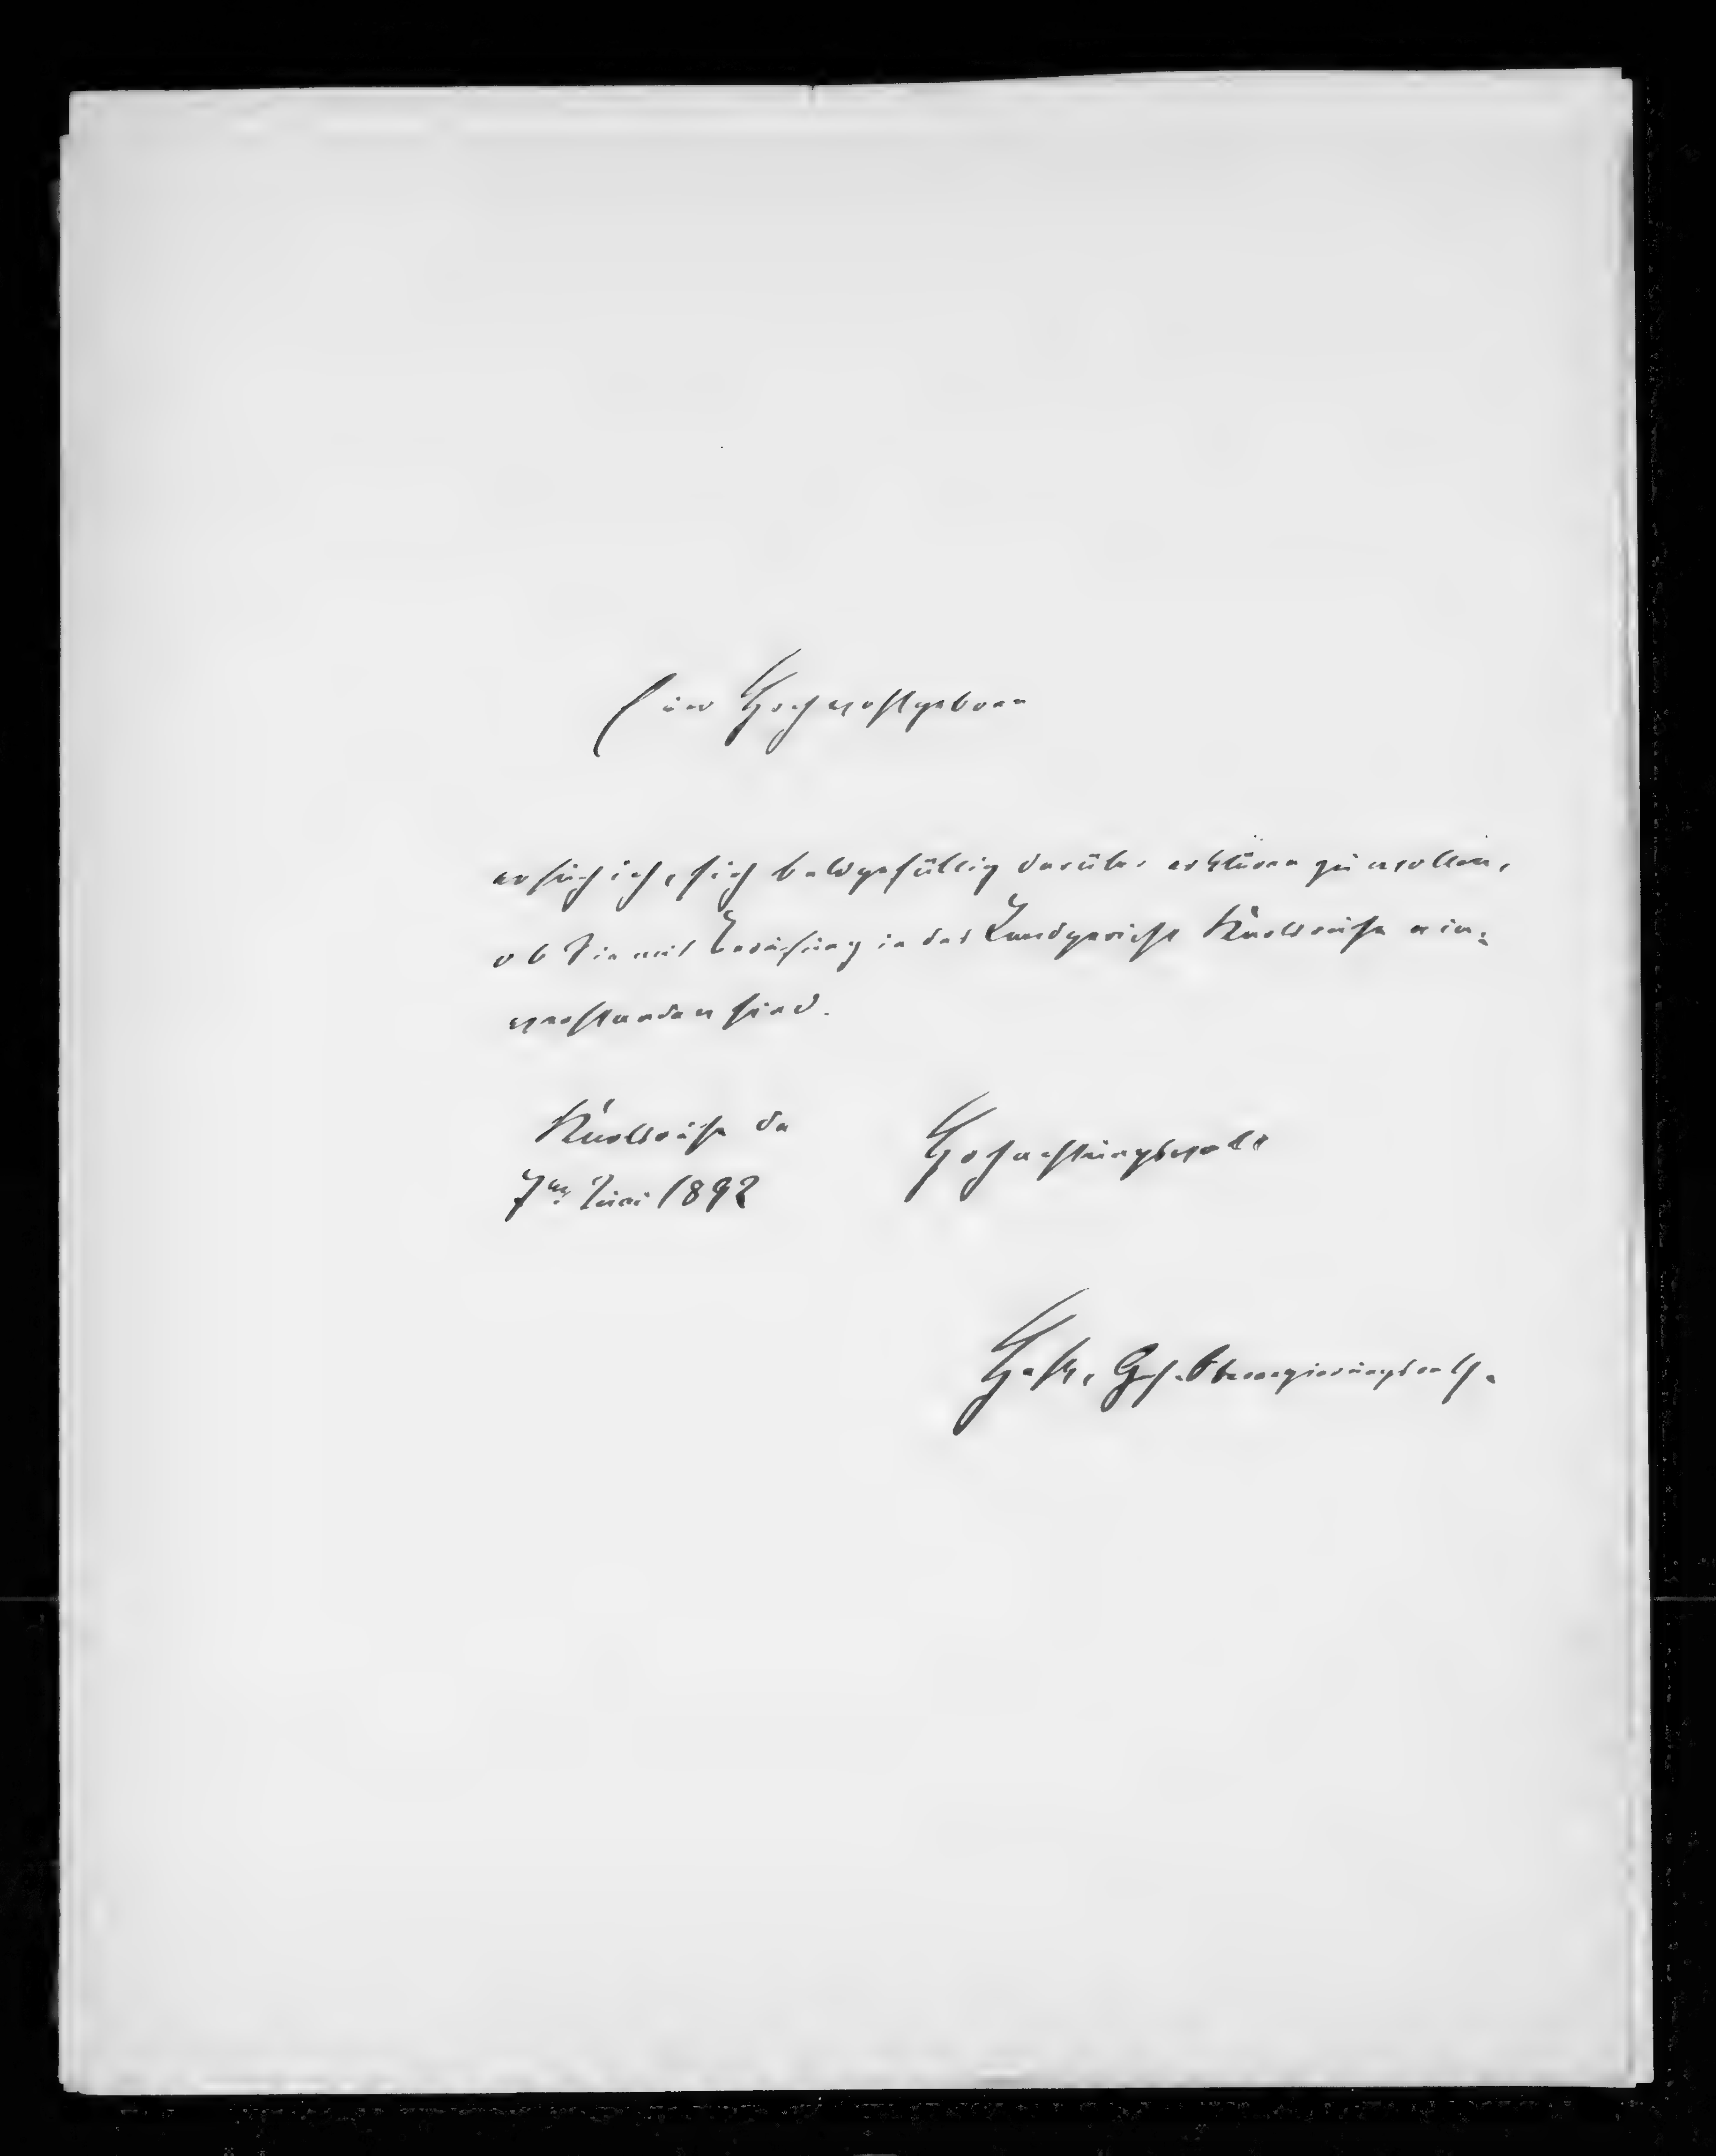 Euer Hochwohlgeboren
ersuche ich, sich baldgefällig darüber erklären zu wollen,
ob Sie mit Berufung in das Landgericht Karlsruhe ein-
verstanden sind.
Karlsruhe den
7ten Juni 1892
Hochachtungsvoll
Geh. Oberregierungsrath.